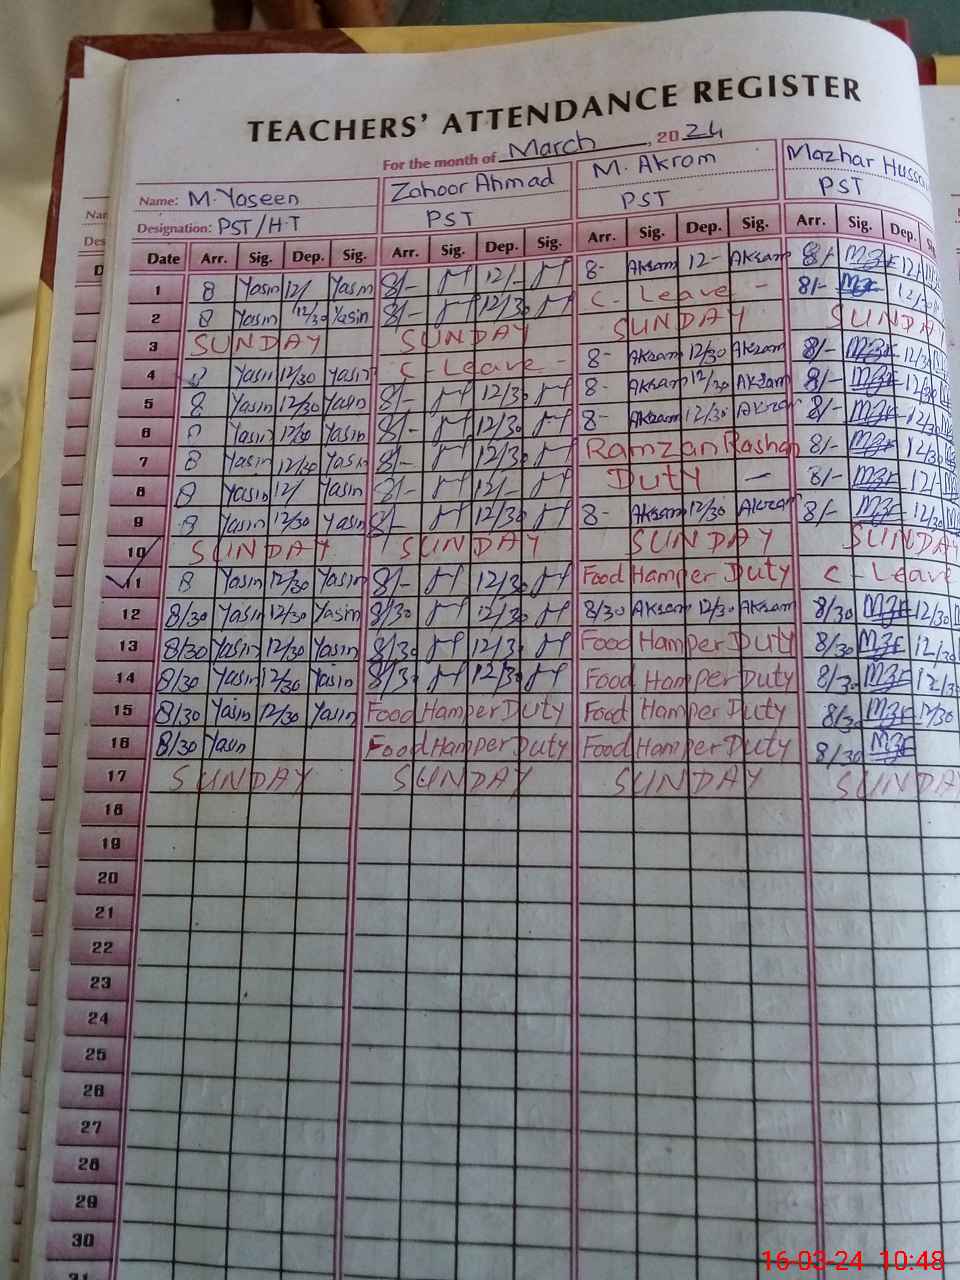 TEACHERS' ATTENDANCE REGISTER
For the month of March, 2024
Name: M. Yaseen Zahoor Ahmad M. Akram Mazhar
Designation: PST / H.T PST PST PST
Date Arr. Sig. Dep. Sig. Arr. Sig. Dep. Sig. Arr. Sig. Dep. Sig. Arr. Sig. Dep.
1 8 Yasin 12/ Yasin 8/- 12/- 8- Akram 12- Akram 8/-
2 8 Yasin 12/30 Yasin 8/- 12/30 C - Leave - 8/-
3 SUNDAY SUNDAY SUNDAY SUNDAY
4 8 Yasin 12/30 Yasin C - Leave - 8- Akram 12/30 Akram 8/- 12/30
5 8 Yasin 12/30 Yasin 8/- 12/30 8- Akram 12/30 Akram 8/- 12/30
6 8 Yasin 12/30 Yasin 8/- 12/30 8- Akram 12/30 Akram 8/- 12/30
7 8 Yasin 12/30 Yasin 8/- 12/30 Ramzan Rashan 8/- 12/30
8 8 Yasin 12/ Yasin 8/- 12/- Duty - 8/- 12/-
9 8 Yasin 12/30 Yasin 8/- 12/30 8- Akram 12/30 Akram 8/- 12/30
10 SUNDAY SUNDAY SUNDAY SUNDAY
11 8 Yasin 12/30 Yasin 8/- 12/30 Food Hamper Duty C - Leave
12 8/30 Yasin 12/30 Yasin 8/30 12/30 8/30 Akram 12/30 Akram 8/30 12/30
13 8/30 Yasin 12/30 Yasin 8/30 12/30 Food Hamper Duty 8/30 12/30
14 8/30 Yasin 12/30 Yasin 8/30 12/30 Food Hamper Duty 8/30 12/30
15 8/30 Yasin 12/30 Yasin Food Hamper Duty Food Hamper Duty 8/30 12/30
16 8/30 Yasin Food Hamper Duty Food Hamper Duty 8/30
17 SUNDAY SUNDAY SUNDAY SUNDAY
18
19
20
21
22
23
24
25
26
27
28
29
30
31
16-03-24 10:48